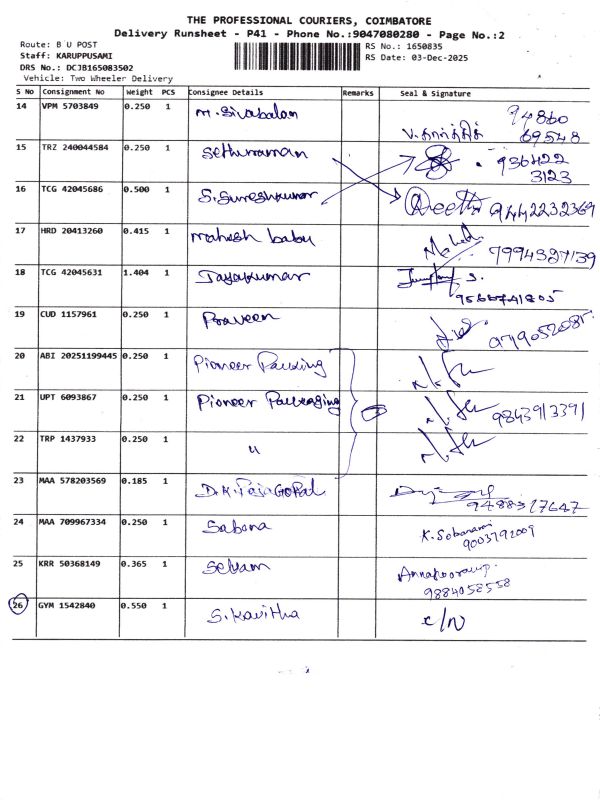 THE PROFESSIONAL COURIERS, COIMBATORE
Delivery Runsheet - P41 - Phone No.:9047080280 - Page No.:2
Route: B U POST
Staff: KARUPPUSAMI
DRS No.: DCJB165083502
Vehicle: Two Wheeler Delivery
RS No.: 1650835
RS Date: 03-Dec-2025
S No Consignment No Weight PCS Consignee Details Remarks Seal & Signature
14 VPM 5703849 0.250 1 M. Sivabalan 94860
V. கார்த்திக் 69548
15 TRZ 240044584 0.250 1 Sethuraman 936422
3123
16 TCG 42045686 0.500 1 S. Sureshkumar Preethi 9442232369
17 HRD 20413260 0.415 1 Mahesh babu 7994327139
18 TCG 42045631 1.404 1 Jayakumar S.
9566741805
19 CUD 1157961 0.250 1 Praveen 979052085
20 ABI 20251199445 0.250 1 Pioneer Packing
21 UPT 6093867 0.250 1 Pioneer Packaging 9843913391
22 TRP 1437933 0.250 1 "
23 MAA 578203569 0.185 1 D.K. RajaGOPal
9488317647
24 MAA 709967334 0.250 1 Sabena K. Sobanam
9003792009
25 KRR 50368149 0.365 1 Selvam Annapoorani
9884058558
26 GYM 1542840 0.550 1 S. Kavitha c/n